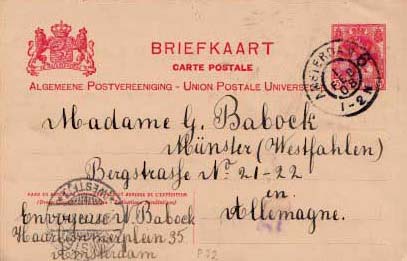 BRIEFKAART
CARTE POSTALE
ALGEMEENE POSTVEREENIGING - UNION POSTALE UNIVERSE
AMSTERDAM
1-2 N
Madame G. Babock
Münster (Westfahlen)
Bergstrasse No. 21-22
in
Allemagne.
Envoyeuse W. Babock
Haarlemmerplein 35
Amsterdam
P 32